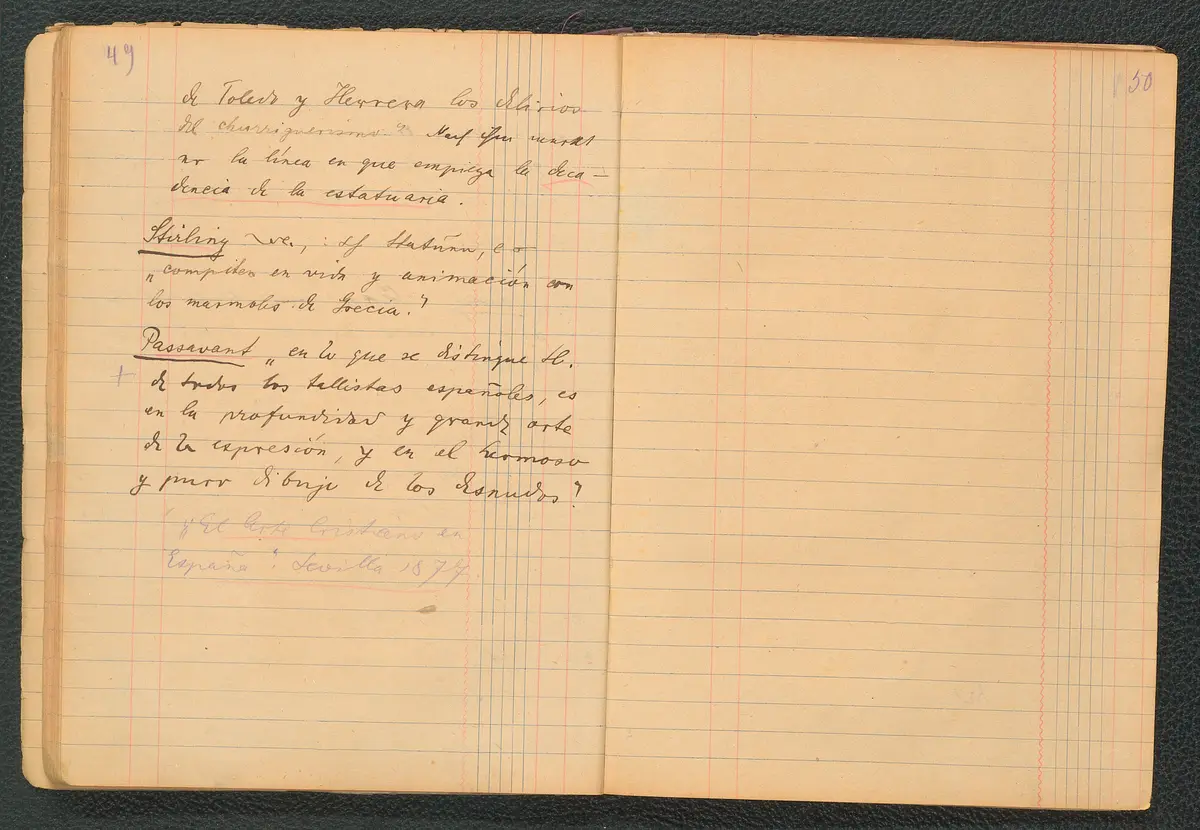 49
de Toledo y Herrera los delirios
del churriguerismo" Nach ihm
la línea en que empieza la deca-
dencia de la estatuaria.
Stirling
"compiten en vida y animación con
los marmoles de Grecia."
Passavant "en lo que se distingue H.
+
de todos los tallistas españoles, es
en la profundidad y grande arte
de la espresión, y en el hermoso
y puro dibujo de los desnudos"
"El Arte Cristiano en
España". Sevilla 1877.
50